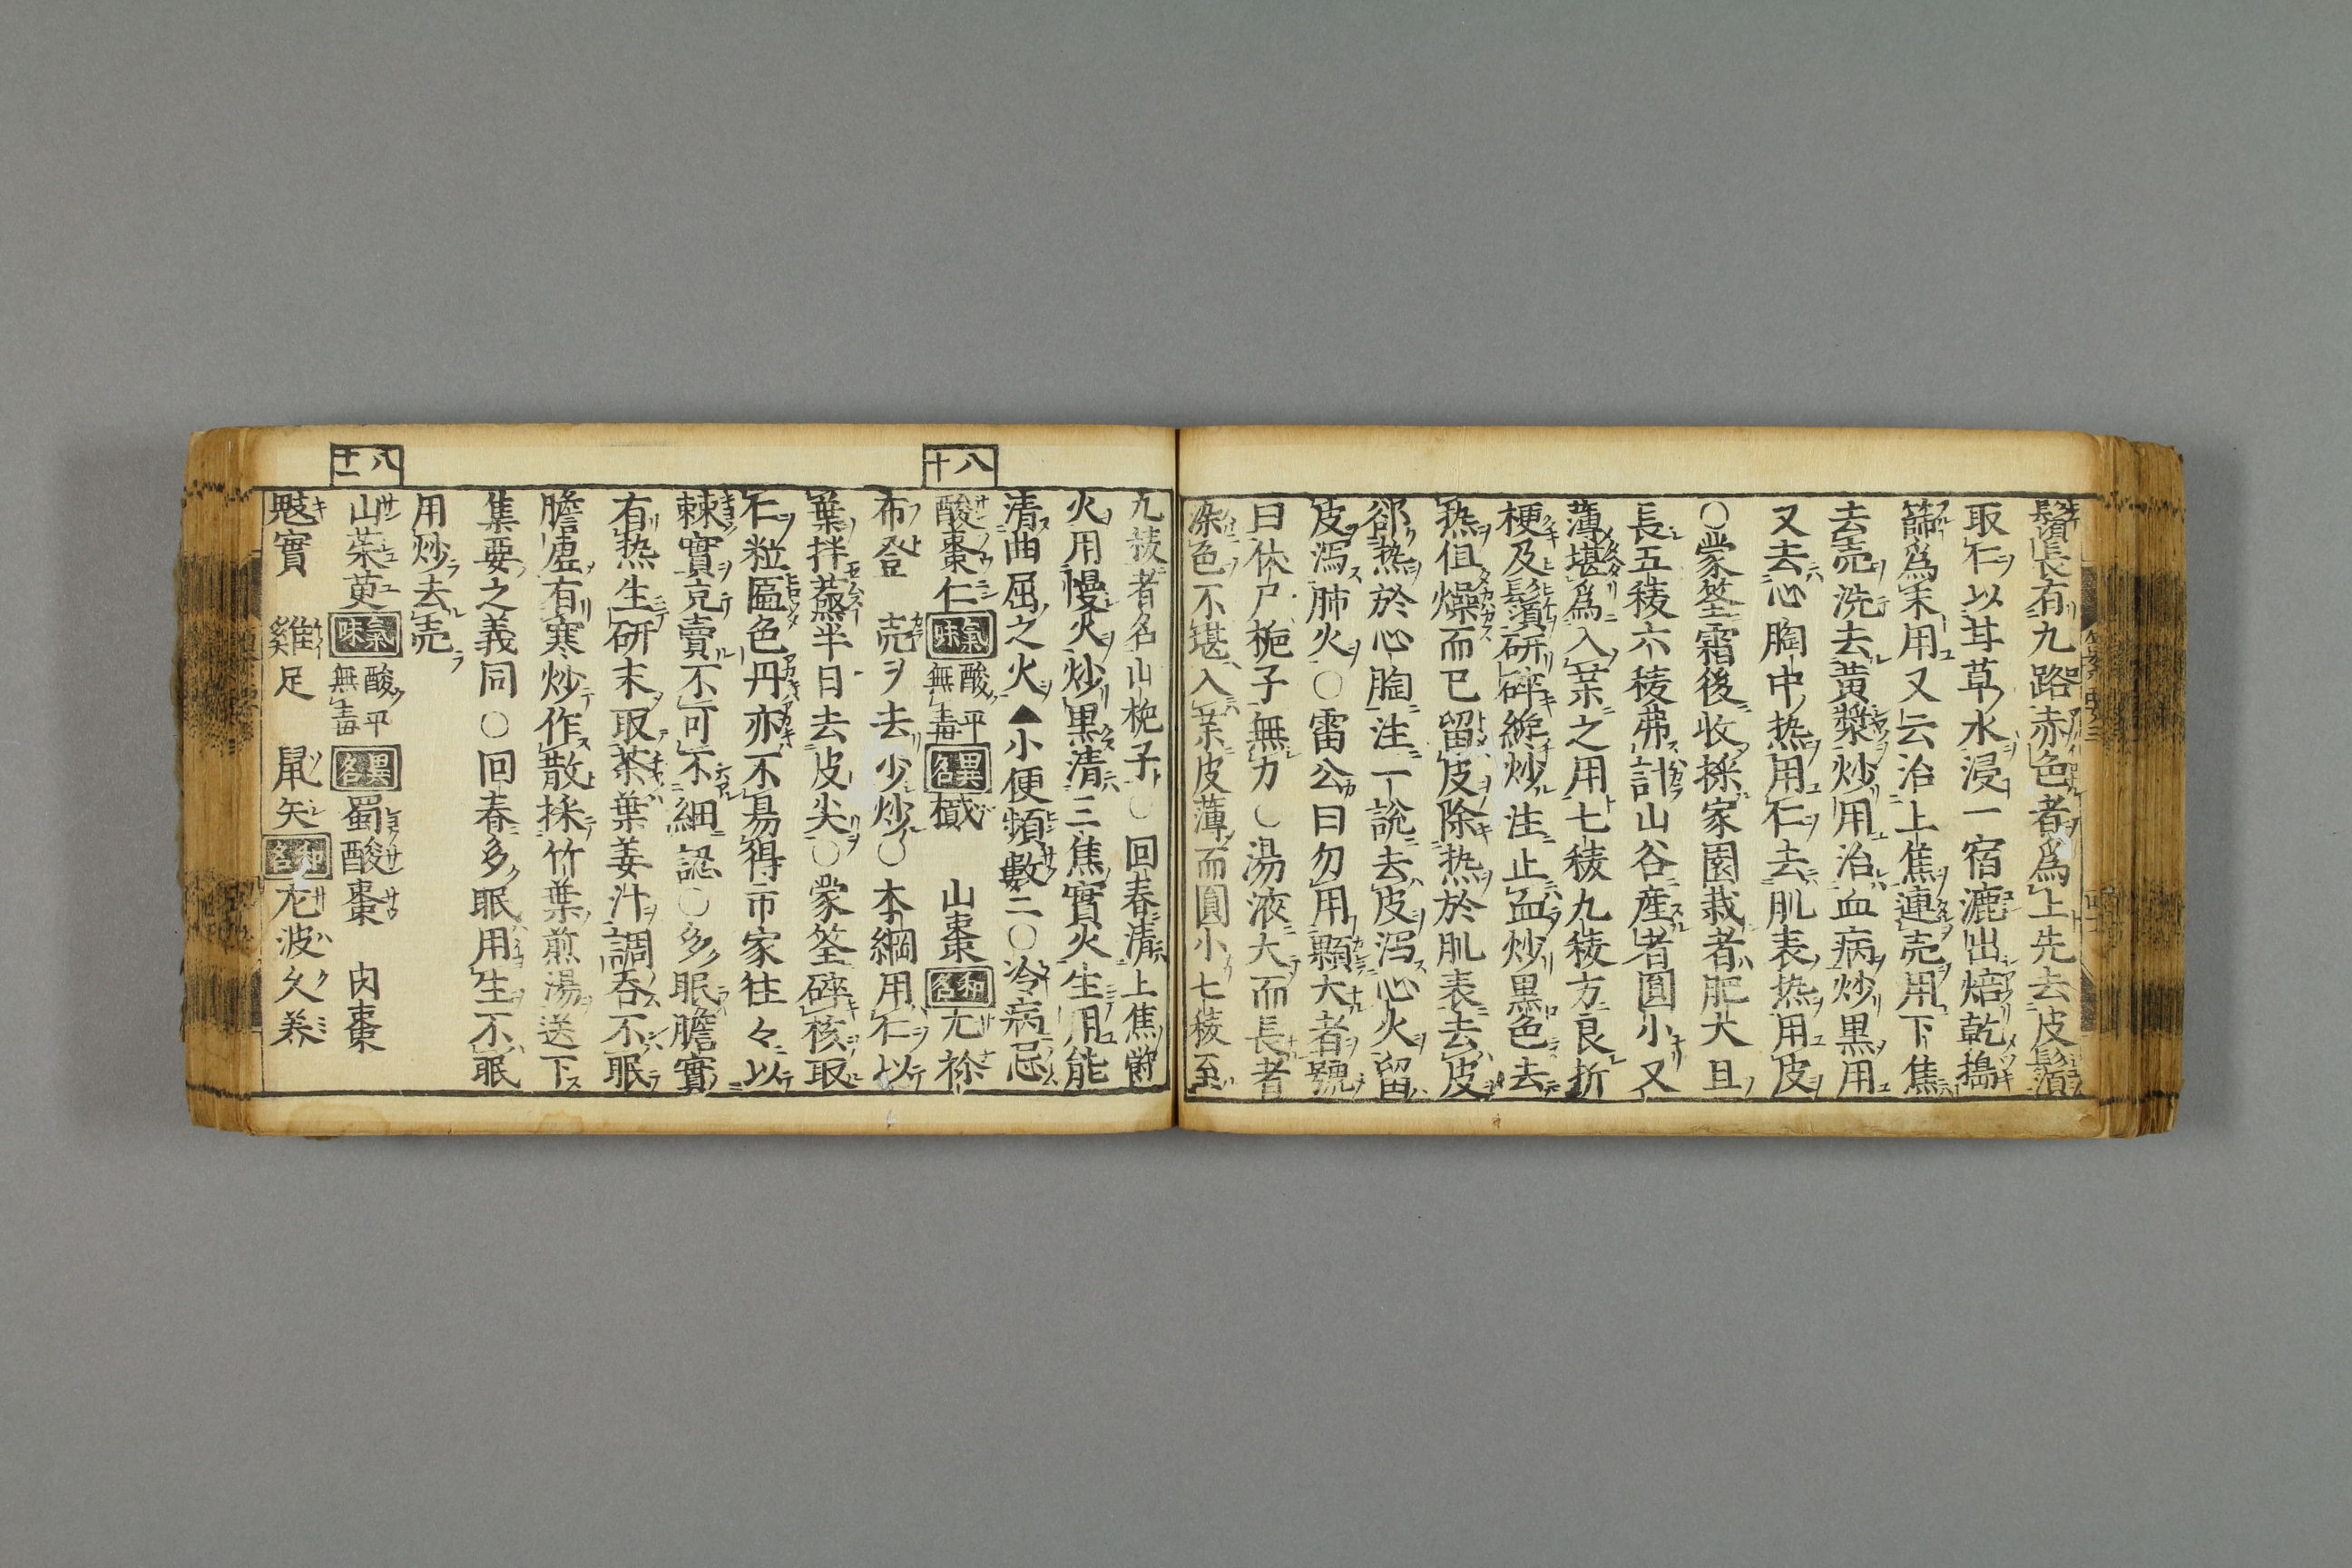 鬚長有九路赤色者爲上先去皮鬚
取仁以甘草水浸一宿漉出焙乾搗
篩爲末用又云治上焦連売用下焦
去売洗去黄漿炒用治血病炒黒用
又去心胸中热用仁去肌表热用皮
○蒙筌霜後收採家園栽者肥大且
長五稜六稜弗計山谷産者圓小又
薄堪爲入薬之用七稜九稜方良折
梗及鬚研碎纔炒注止血炒黒色去
热但燥而已留皮除热於肌表去皮
郤热於心胸注一説去皮瀉心火留
皮瀉肺火○雷公曰勿用顆大者號
曰伏尸梔子無力○湯液大而長者
染色不堪入薬皮薄而圓小七稜至
九稜者名山梔子○回春清上焦欝
火用慢火炒黒清三焦實火生用能
清曲屈之火▲小便頻數二○冷病忌
八十
酸棗仁 氣味 酸平無毒 異名 樲 山棗 和名 尤祢
布登 売ヲ去少炒○本綱用仁以
葉拌蒸半日去皮尖○蒙筌碎核取
仁粒匾色丹亦不易得市家往々以
棘實充賣不可不細認○多眠膽實
有热生研末取茶葉姜汁調呑不眠
膽虚有寒炒作散採竹葉煎湯送下
集要之義同○回春多眠用生不眠
用炒去売
八十一
山茱萸 氣味 酸平無毒 異名 蜀酸棗 肉棗
鬾實 雞足 鼠矢 和名 尤波久養